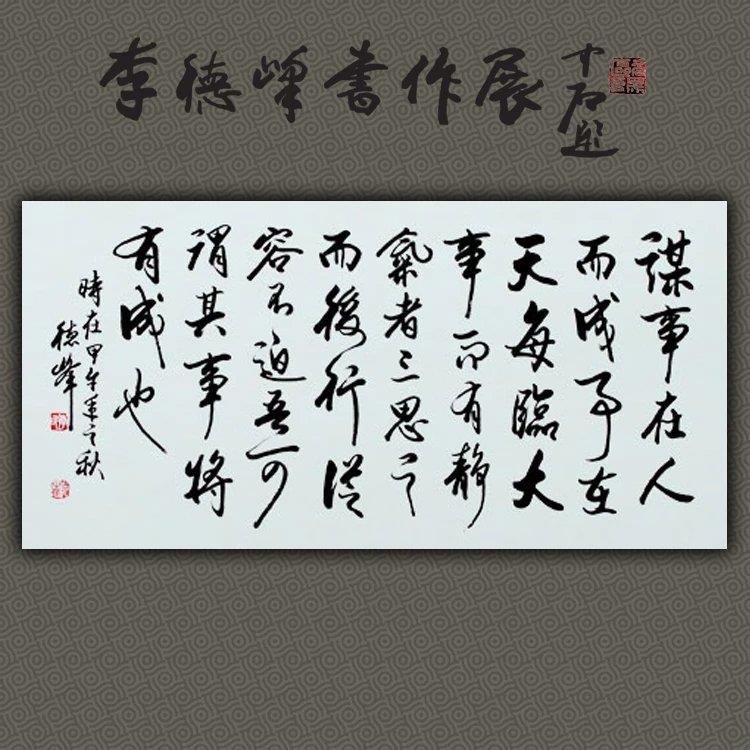 李德峰書作展
中石題
謀事在人
而成事在
天每臨大
事而有静
氣者三思之
而後行從
容不迫吾可
謂其事將
有成也
時在甲午年之秋
德峰